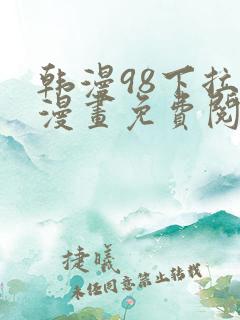 韩漫98下拉
漫畫免費閱
捷曦
未经同意禁止转载